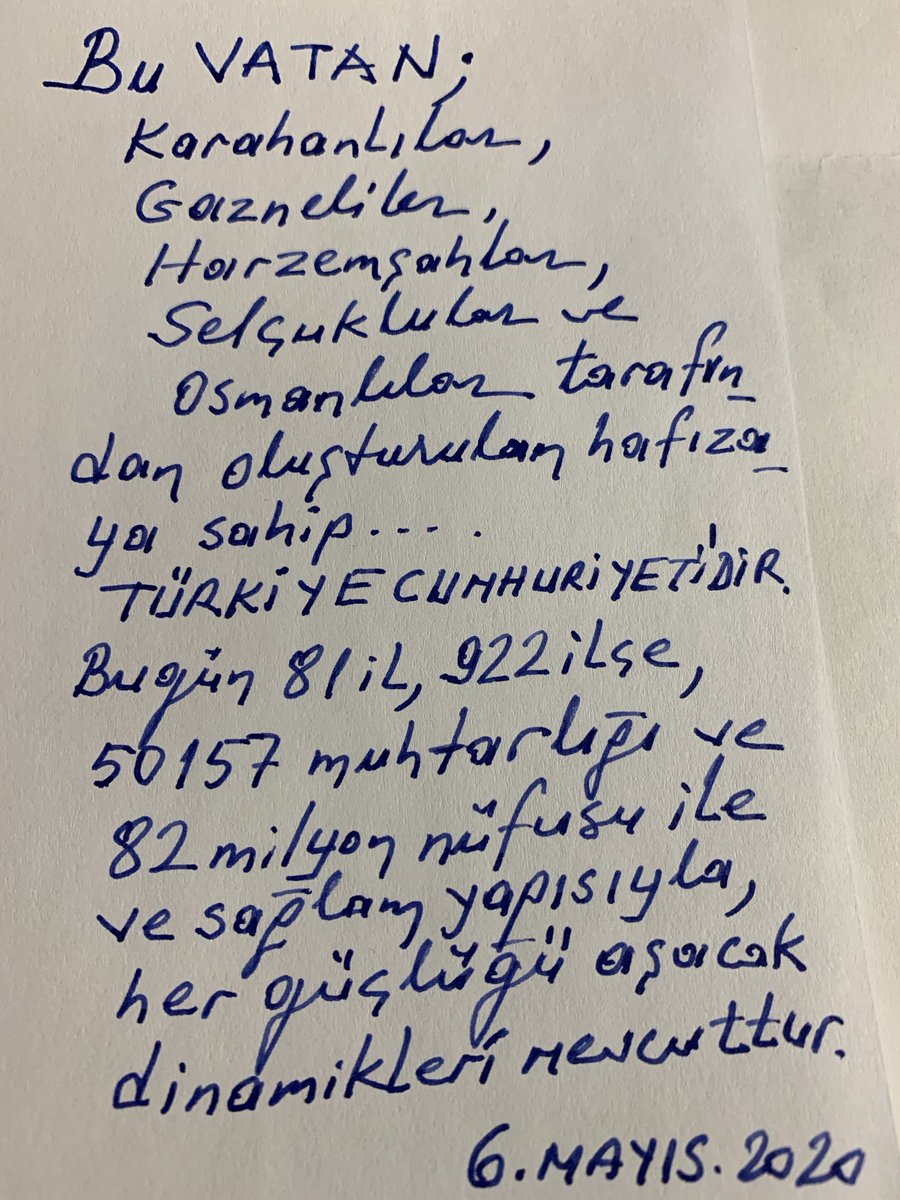 Bu VATAN;
Karahanlılar,
Gazneliler,
Harzemşahlar,
Selçuklular ve
Osmanlılar tarafın_
dan oluşturulan hafıza_
ya sahip....
TÜRKİYE CUMHURİYETİ'DİR.
Bugün 81 il, 922 ilçe,
50157 muhtarlığı ve
82 milyon nüfusu ile
ve sağlam yapısıyla,
her güçlüğü aşacak
dinamikleri mevcuttur.
6.MAYIS.2020